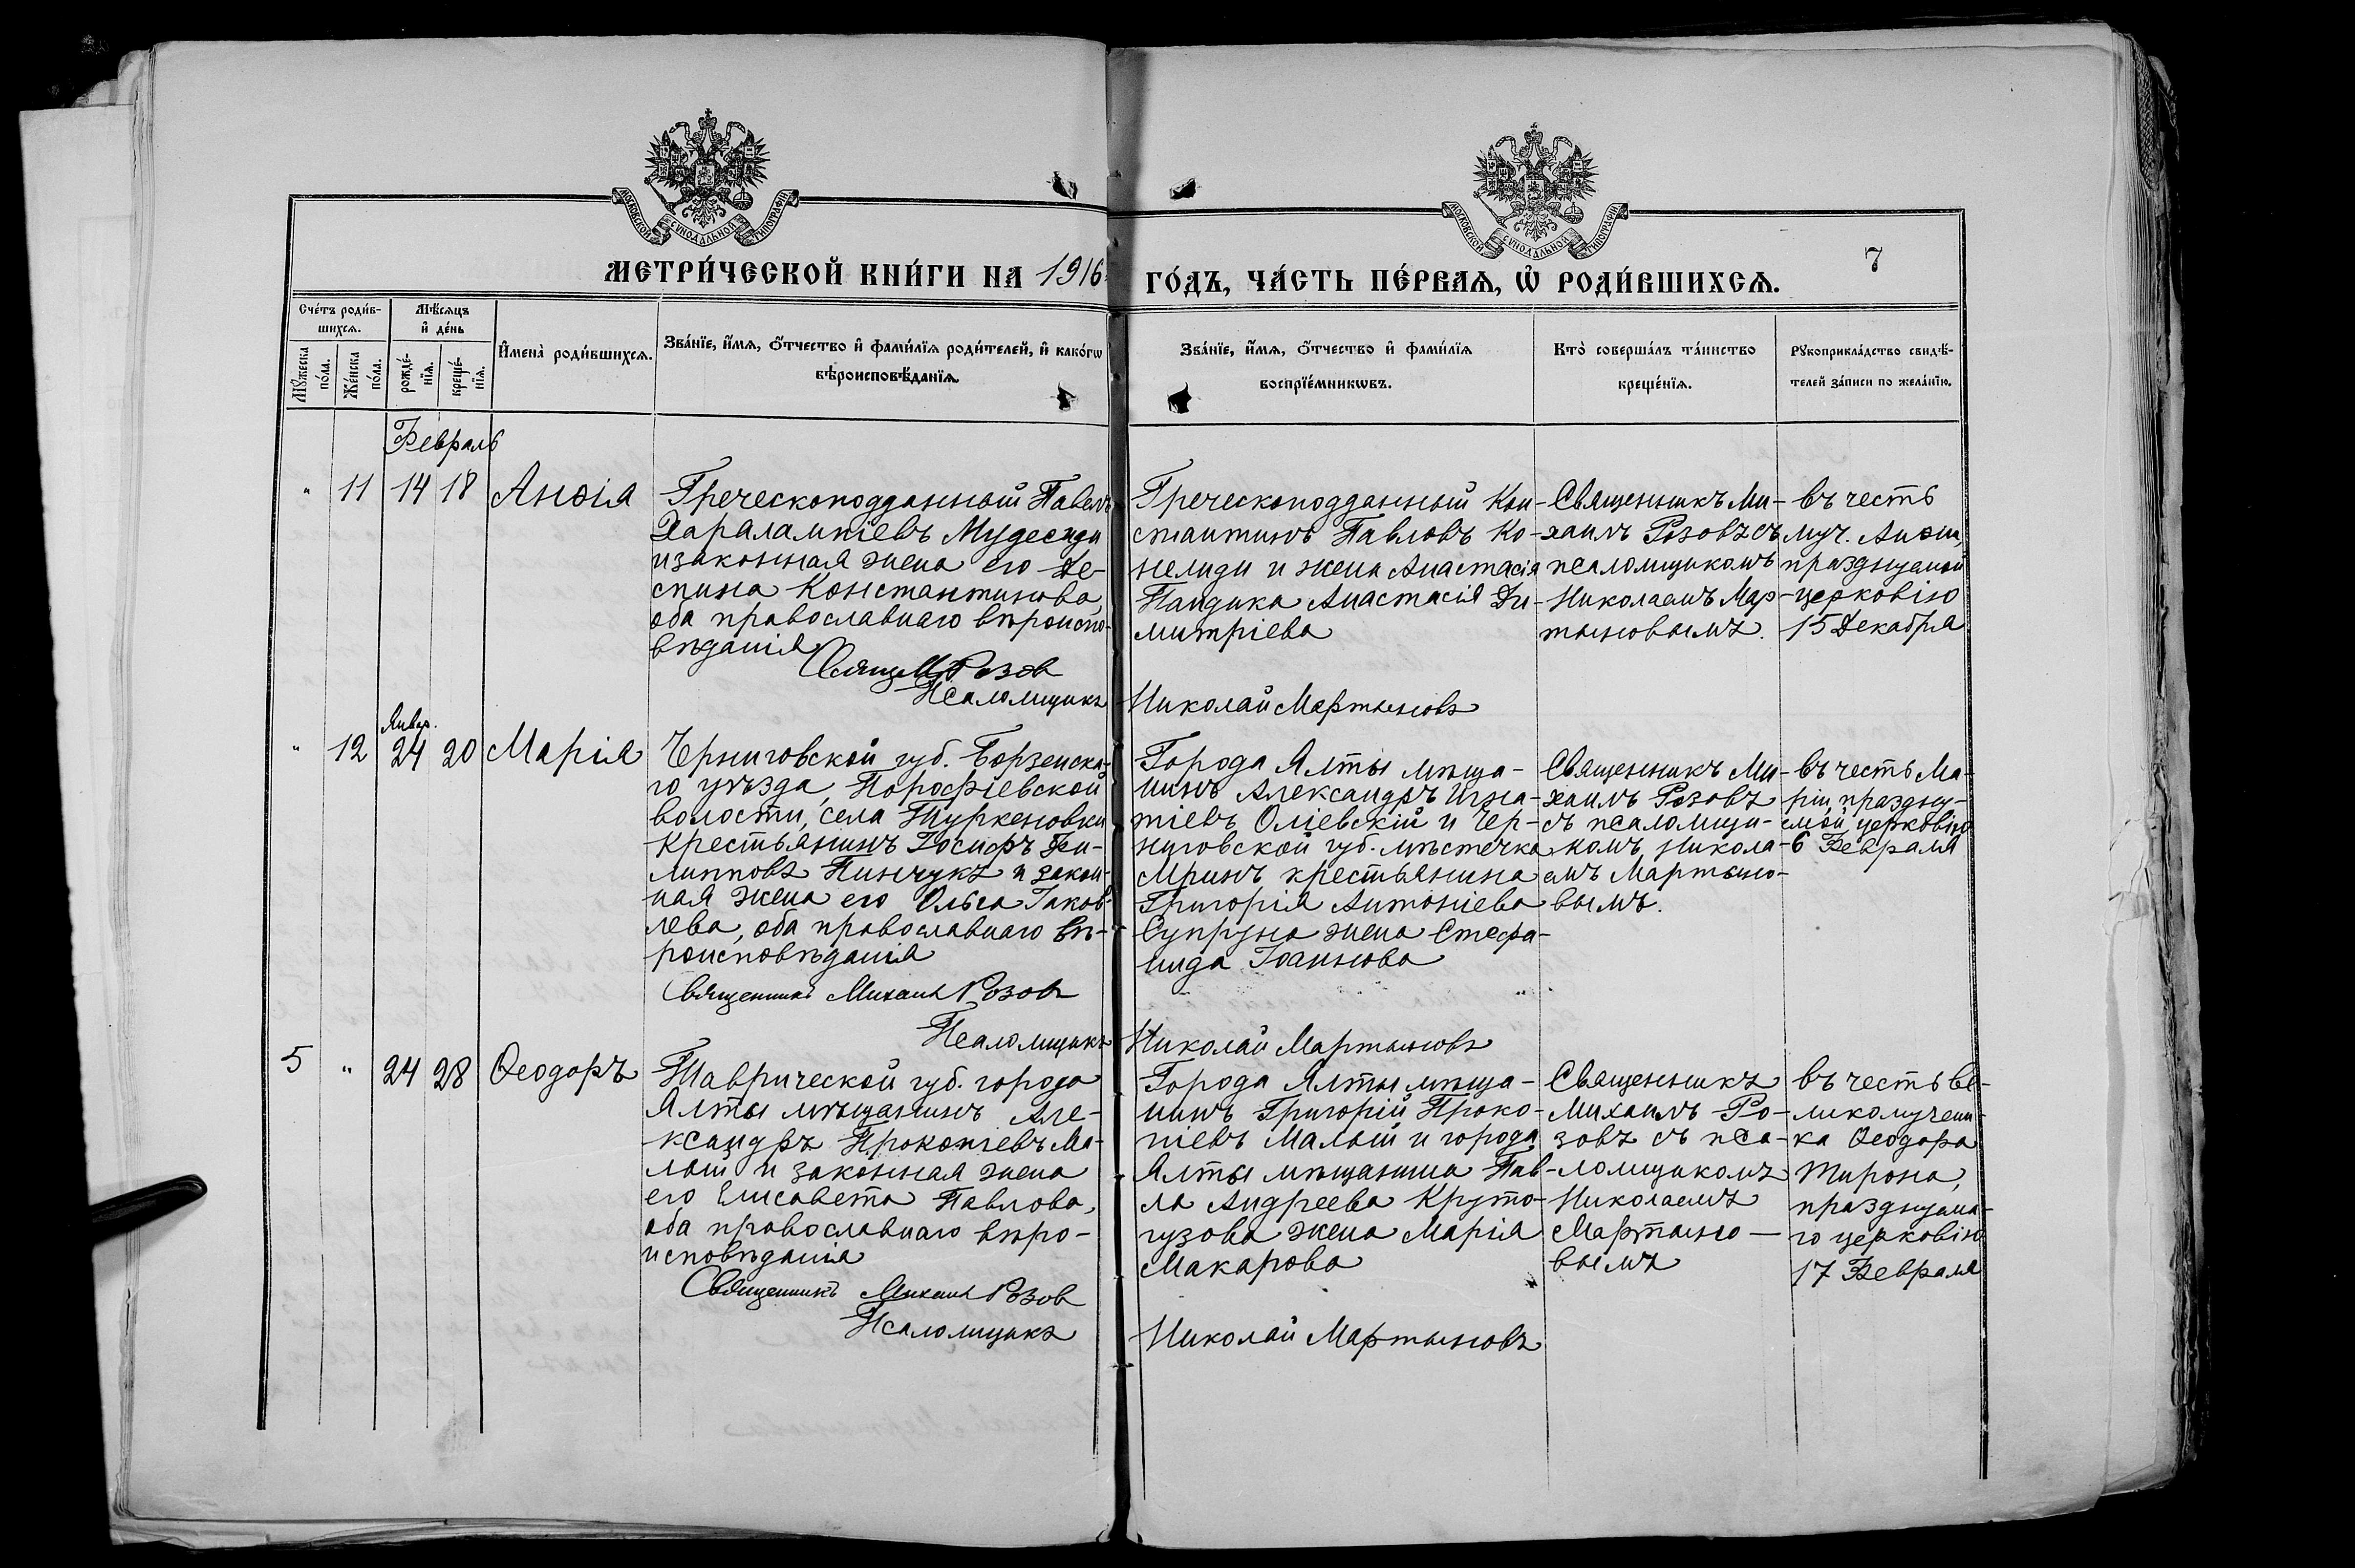 МОСКОВСКОЙ СѴНОДАЛЬНОЙ ТИПОГРАФІИ
МОСКОВСКОЙ СѴНОДАЛЬНОЙ ТИПОГРАФІИ
7
МЕТРИ́ЧЕСКОЙ КНИ́ГИ НА 1916 ГО́ДЪ, ЧА́СТЬ ПЕ́РВАѦ, Ѡ҆ РОДИ́ВШИХСѦ.
Сче́тъ роди́в-
шихсѧ.
Мꙋ́жеска
по́ла.
Же́нска
по́ла.
Мѣ́сѧцъ
и҆ де́нь
рожде́-
нїѧ.
креще́-
нїѧ.
И҆мена̀ роди́вшихсѧ.
Зва́нїе, и҆́мѧ, ѻ҆́тчество и҆ фами́лїѧ роди́телей, и҆ како́гѡ
вѣроисповѣ́данїѧ.
Зва́нїе, и҆́мѧ, ѻ҆́тчество и҆ фами́лїѧ
воспрїе́мникѡвъ.
Кто̀ соверша́лъ та́инство
креще́нїѧ.
Рꙋкоприкла́дство свидѣ́-
телей за́писи по жела́нїю.
Февраль
" 11 14 18 Анѳія
Греческоподданный Павелъ
Харалампіевъ Мудесиди
и законная жена его Де-
спина Константинова,
оба православнаго вѣроиспо-
вѣданія
Свящ. М. Розов
Псаломщикъ
Греческоподданный Кон-
стантинъ Павловъ Ко-
нелиди и жена Анастасія
Пандика Анастасія Ди-
митріева
Николай Мартыновъ
Священникъ Ми-
хаилъ Розовъ съ
псаломщикомъ
Николаемъ Мар-
тыновымъ.
въ честь
муч. Анѳіи,
празднуемой
церковію
15 Декабря
Январ.
" 12 24 20 Марія
Черниговской губ. Борзенска-
го уѣзда, Порофіевской
волости, села Туркеновки
крестьянинъ Іосифъ Фи-
липповъ Пинчукъ и закон-
ная жена его Ольга Іаков-
лева, оба православнаго вѣ-
роисповѣданія
Священникъ Михаилъ Розовъ
Псаломщикъ
Города Ялты мѣща-
нинъ Александръ Игна-
тіевъ Оліевскій и Чер-
ниговской губ. мѣстечка
Мринъ крестьянина
Григорія Антоніева
Супруна жена Стефа-
нида Іоаннова
Николай Мартыновъ
Священникъ Ми-
хаилъ Розовъ
съ псаломщи-
комъ Никола-
емъ Мартыно-
вымъ.
въ честь Ма-
ріи, праздну-
емой церковію
6 Февраля
5 " 24 28 Ѳеодоръ
Таврической губ. города
Ялты мѣщанинъ Але-
ксандръ Прокопіевъ Ма-
лый и законная жена
его Елисавета Павлова,
оба православнаго вѣро-
исповѣданія
Священникъ Михаилъ Розов
Псаломщикъ
Города Ялты мѣща-
нинъ Григорій Проко-
піевъ Малый и города
Ялты мѣщанина Пав-
ла Андреева Круто-
гузова жена Марія
Макарова
Николай Мартыновъ
Священникъ
Михаилъ Ро-
зовъ съ пса-
ломщикомъ
Николаемъ
Мартыно-
вымъ
въ честь ве-
ликомучени-
ка Ѳеодора
Тирона,
празднуема-
го церковію
17 Февраля